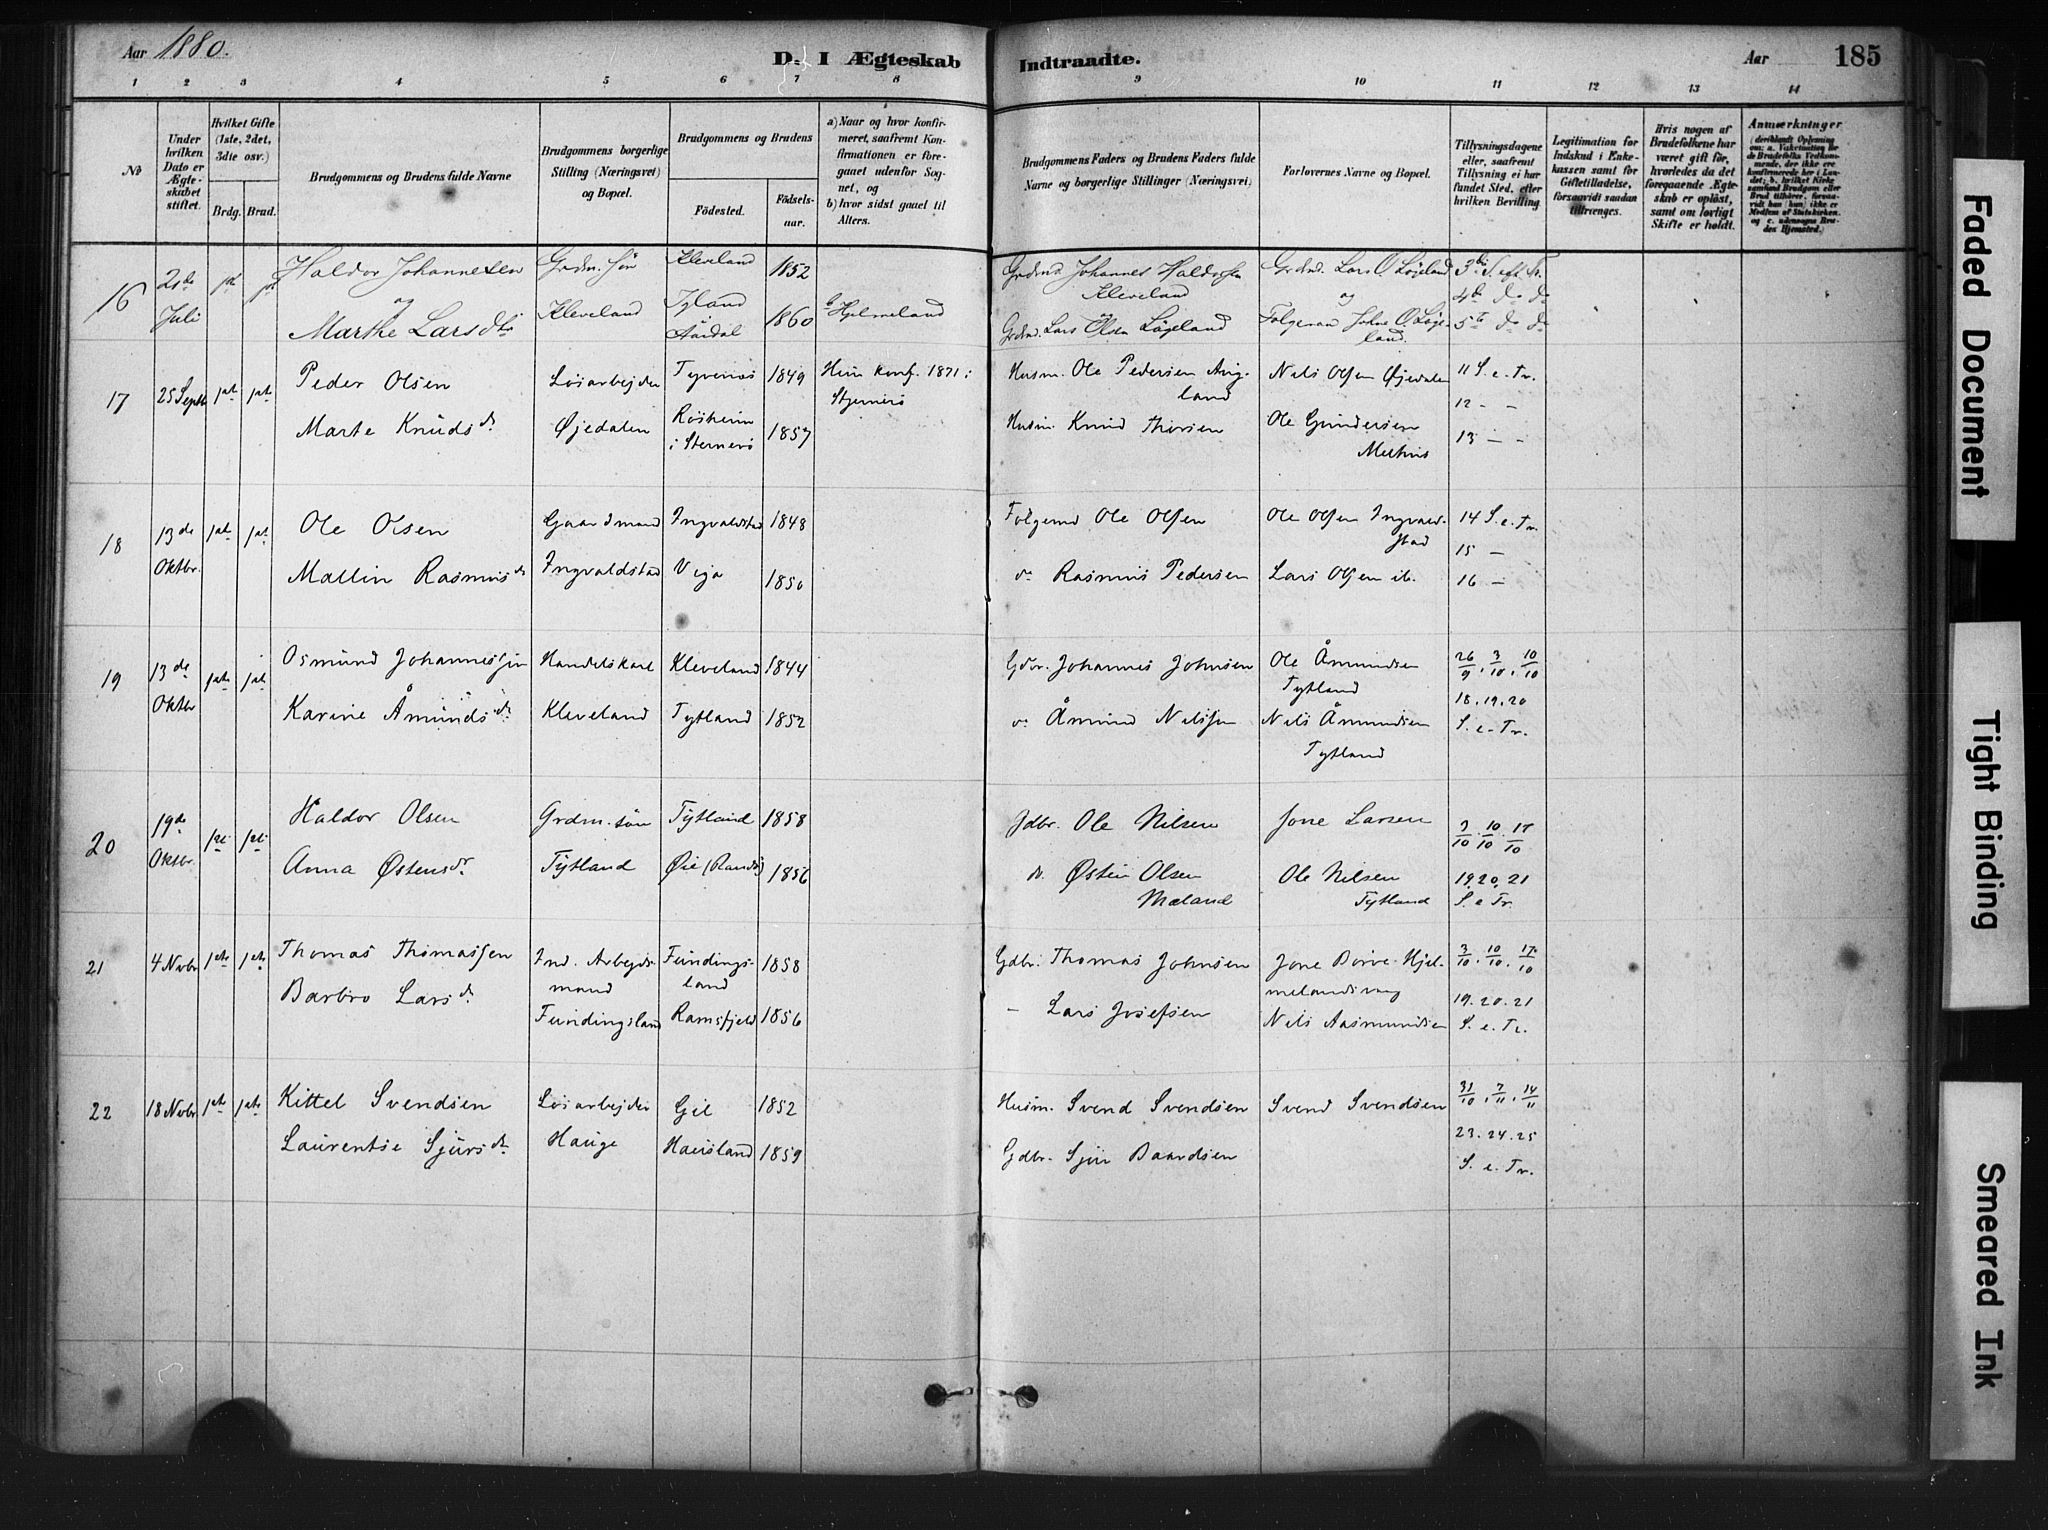 Aar 1880.
D. I Ægteskab Indtraadte.
Aar 185
1 2 3 4 5 6 7 8 9 10 11 12 13 14
No
Under hvilken Dato er Ægteskabet stiftet.
Hvilket Gifte (1ste, 2det, 3dte osv.)
Brdg. Brud.
Brudgommens og Brudens fulde Navne
Brudgommens borgerlige Stilling (Næringsvei) og Bopæl.
Brudgommens og Brudens
Födested.
Födsels-aar.
a) Naar og hvor konfirmeret, saafremt Konfirmationen er foregaaet udenfor Sognet, og
b) hvor sidst gaaet til Alters.
Brudgommens Faders og Brudens Faders fulde Navne og borgerlige Stillinger (Næringsvei)
Forlovernes Navne og Bopæl.
Tillysningsdagene eller, saafremt Tillysning ei har fundet Sted, efter hvilken Bevilling.
Legitimation for Indskud i Enkekassen samt for Giftetilladelse, forsaavidt saadan tiltrænges.
Hvis nogen af Brudefolkene har været gift før, hvorledes da det foregaaende Ægteskab er opløst, samt om lovligt Skifte er holdt.
Anmærkninger
16 2de Juli 1ste 1ste
Haldor Johannesen
og
Marthe Larsdtr
Grdm. søn
Kleveland
Kleveland 1852
Årdal 1860
Hjelmeland
Grdmd Johannes Haldorsen
Kleveland
Grdm. Lars Olsen Løgeland
Grdmd. Lars O. Løgeland
og
Folgeman Johne O. Løge-
land.
3die S. eft. Tr.
4de do do
5te do do
17 25 Septb 1ste 1ste
Peder Olsen
Marte Knudsdr.
Løsarbejder
Øjedalen
Tysvær 1849
Røsheim
i Sternerö 1857
Hun konf. 1871 i
Stjernerö
Husm. Ole Pedersen Aug-
land
Husm. Knud Thorsen
Nils Olsen Øjedalen
Ole Gundersen
11 S. e. Tr.
12 - -
13 - -
18 13de Oktbr. 1ste 1ste
Ole Olsen
Mallin Rasmusdr
Gaardmand
Ingvaldstad
Ingvaldstad 1848
Viga 1850
Folgemd Ole Olsen
do Rasmus Pedersen
Ole Olsen Ingvald-
stad
Lars Olsen ib.
14 S. e. Tr.
15 -
16 -
19 13de Oktbr 1ste 1ste
Osmund Johannessen
Karine Åmundsdr.
Handelskarl
Kleveland
Kleveland 1844
Tytland 1852
Gdbr. Johannes Johnsen
do Åmund Nilsen
Ole Åmundsen
Tytland
Nils Åmundsen
Tytland
26/9. 3/10. 10/10
18. 19. 20
S. e. Tr.
20 19de Oktbr. 1ste 1ste
Haldor Olsen
Anna Østensdr.
Grdm. søn
Tytland
Tytland 1858
Øie (Randö) 1856
Gdbr. Ole Nilsen
do. Østen Olsen
Mæland
Jone Larsen
Ole Nilsen
Tytland
3/10. 10/10. 17/10
19. 20. 21
S. e Tr.
21 4 Nvbr 1ste 1ste
Thomas Thomassen
Barbro Larsdr.
Ind. Arbejds-
mand
Fundingsland
Fundings-
land 1858
Ramsfjeld 1856
Gdbr. Thomas Johnsen
- Lars Josefsen
Jone Børve. Hjel-
melandsvaag
Nils Aasmundsen
3/10. 10/10. 17/10
19. 20. 21
S. e. Tr.
22 18 Nvbr 1ste 1ste
Kittel Svendsen
Laurentse Sjursdr.
Løsarbejder
Hauge
Gil 1852
Hausland 1859
Husm. Svend Svendsen
Gdbr. Sjur Baardsen
Svend Svendsen
31/10. 7/11. 14/11
23. 24. 25
S. e. Tr.
Faded Document
Tight Binding
Smeared Ink